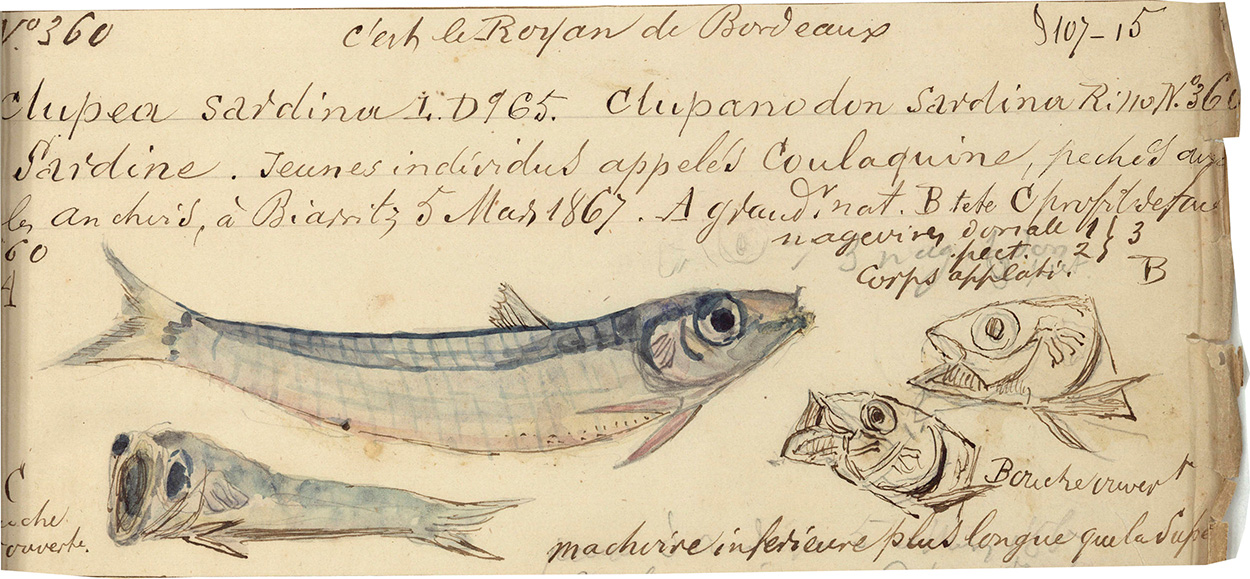 N.º 360 c'est le Royan de Bordeaux 107-15
Clupea sardina L. D 965. Clupanodon Sardina Risso N.º 360
Sardine. Jeunes individus appelés Coulaquine, pechés avec
les anchois, à Biarritz 5 Mars 1867. A grand.r nat. B tete C profil de face
60
nageoires dorsale 1 } 3
pect. 2 }
A
corps applati.
B
C
Bouche ouvert
ouverte.
machoire inferieure plus longue que la Supe